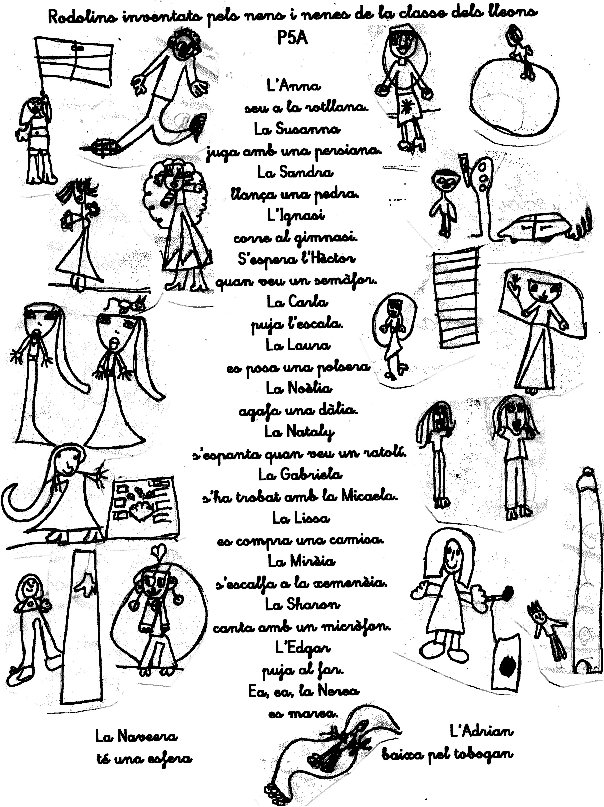 Rodolins inventats pels nens i nenes de la classe dels lleons
P5A
L'Anna
seu a la rotllana.
La Susanna
juga amb una persiana.
La Sandra
llança una pedra.
L'Ignasi
corre al gimnasi.
S'espera l'Hèctor
quan veu un semàfor.
La Carla
puja l'escala.
La Laura
es posa una polsera
La Noèlia
agafa una dàlia.
La Nataly
s'espanta quan veu un ratolí.
La Gabriela
s'ha trobat amb la Micaela.
La Lissa
es compra una camisa.
La Mirèia
s'escalfa a la xemenèia.
La Sharon
canta amb un micròfon.
L'Edgar
puja al far.
Ea, ea, la Nerea
es marea.
La Naveera
té una esfera
L'Adrian
baixa pel tobogan